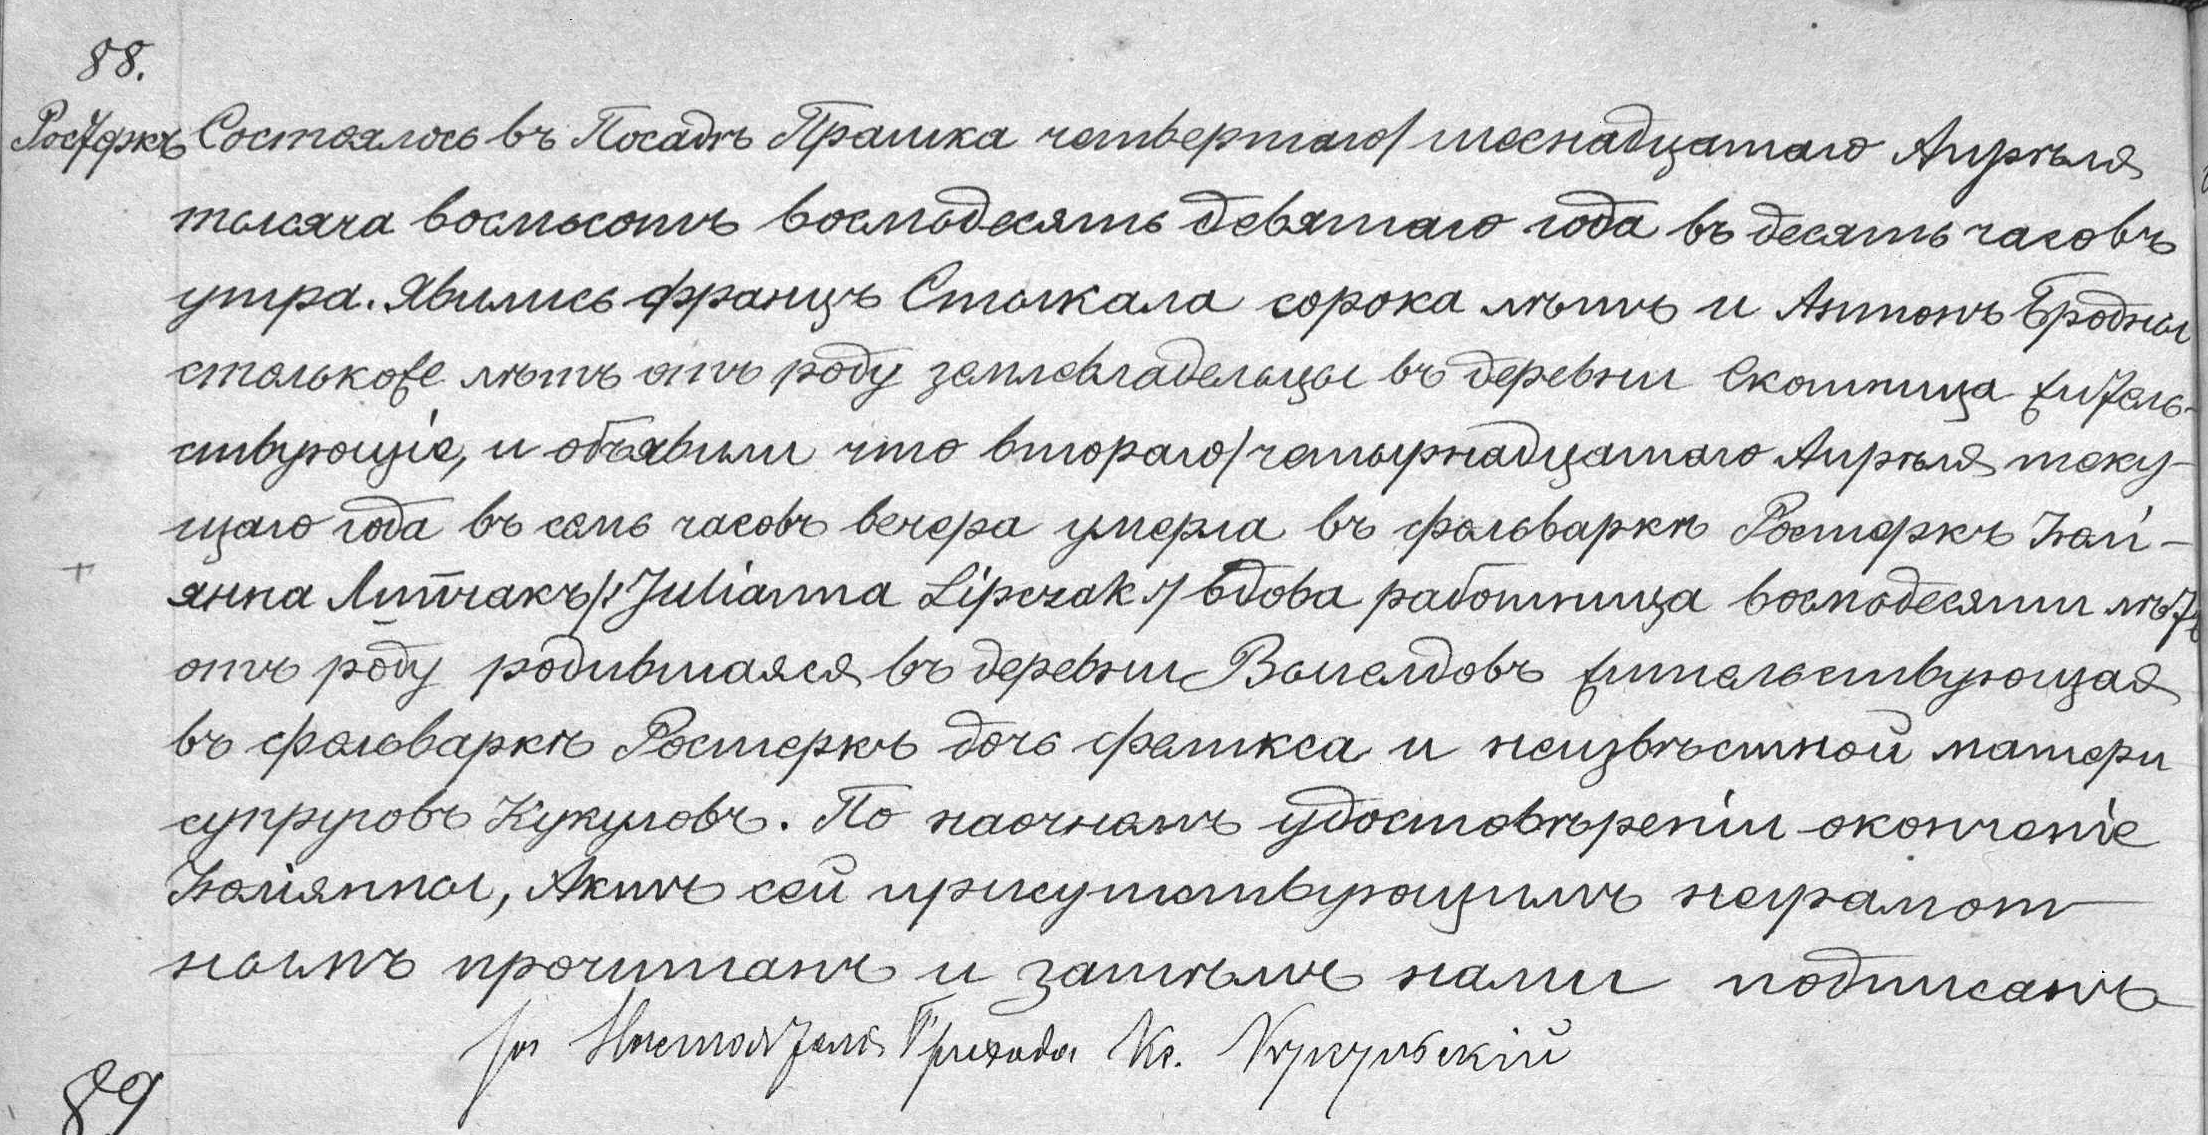 88.
Состоялось въ Посадѣ Прашка четвертаго/шеснадцатаго Апрѣля
тысяча восмьсотъ восмьдесятъ девятаго года въ десять часовъ
утра. Явились Францъ Стыкала сорока лѣтъ и Антонъ Бродны
столькоже лѣтъ отъ роду землевладельцы въ деревни Скотница житель-
ствующіе, и объявили что втораго/четырнадцатаго Апрѣля теку-
щаго года въ семь часовъ вечера умерла въ фольваркѣ Ростеркъ Юлі-
янна Липчакъ /:Julianna Lipczak:/ вдова работница восмьдесяти лѣтъ
отъ роду родившаяся въ деревни жительствующая
въ фольваркѣ Ростеркъ дочь Феликса и неизвѣстной матери
супруговъ Кукуловъ. По наочномъ удостовѣреніи оконченіе
Юліянны, Актъ сей присутствующимъ неграмот-
нымъ прочитанъ и затѣмъ нами подписанъ
Настоятель Прихода Кс.
89